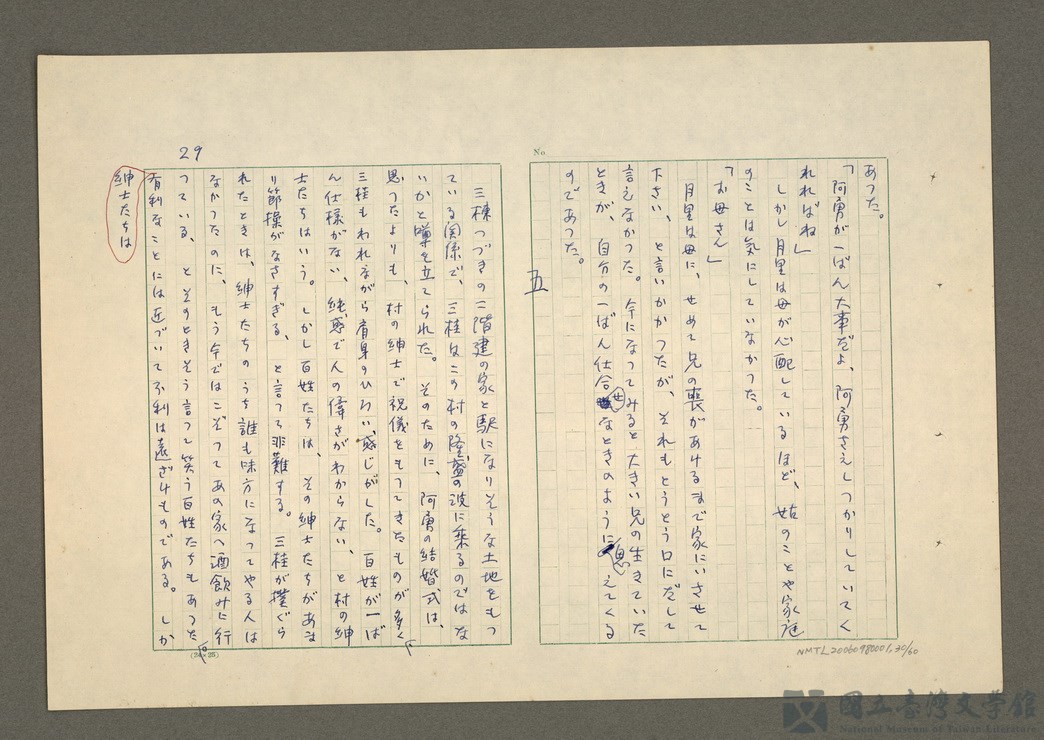 No.
あつた。
「阿勇が一ばん大事だよ、阿勇さえしつかりしていてく
れればね」
しかし月里は母が心配しているほど、姑のことや家庭
のことは気にしていなかつた。
「お母さん」
月里は母に、せめて兄の喪があけるまで家にいさせて
下さい、と言いかかつたが、それもとうとう口にだして
言えなかつた。今になつてみると大きい兄の生きていた
ときが、自分の一ばん仕合せなときのように思えてくる
のであつた。
五
29
三棟つづきの二階建の家と駅になりそうな土地をもつ
ている関係で、三桂はこの村の隆盛の波に乗るのではな
いかと噂を立てられた。そのために、阿勇の結婚式は、
思つたよりも、村の紳士で祝儀をもつてきたものが多く
三桂もわれながら肩身のひろい感じがした。百姓が一ば
ん仕様がない、純感で人の偉さがわからない、と村の紳
士たちはいう。しかし百姓たちは、その紳士たちがあま
り節操がなさすぎる、と言つて非難する。三桂が撲ぐら
れたときは、紳士たちのうち誰も味方になつてやる人は
なかつたのに、もう今ではこぞつてあの家へ酒飲みに行
つている、とそのときそう言つて笑う百姓たちもあつた
有利なことには近づいて不利は遠ざけものである。しか
紳士たちは
(24×25)
NMTL20060980001,30/60
國立臺灣文學館
National Museum of Taiwan Literature